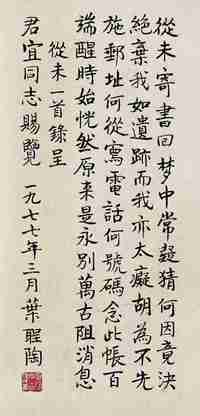 從未寄書回梦中常疑猜何因竟決
絶棄我如遺跡而我亦太癡胡為不先
施郵址何從寫電話何號碼念此悵百
端醒時始恍然原来是永別萬古阻消息
從未一首錄呈
君宜同志賜覽 一九七七年三月葉聖陶